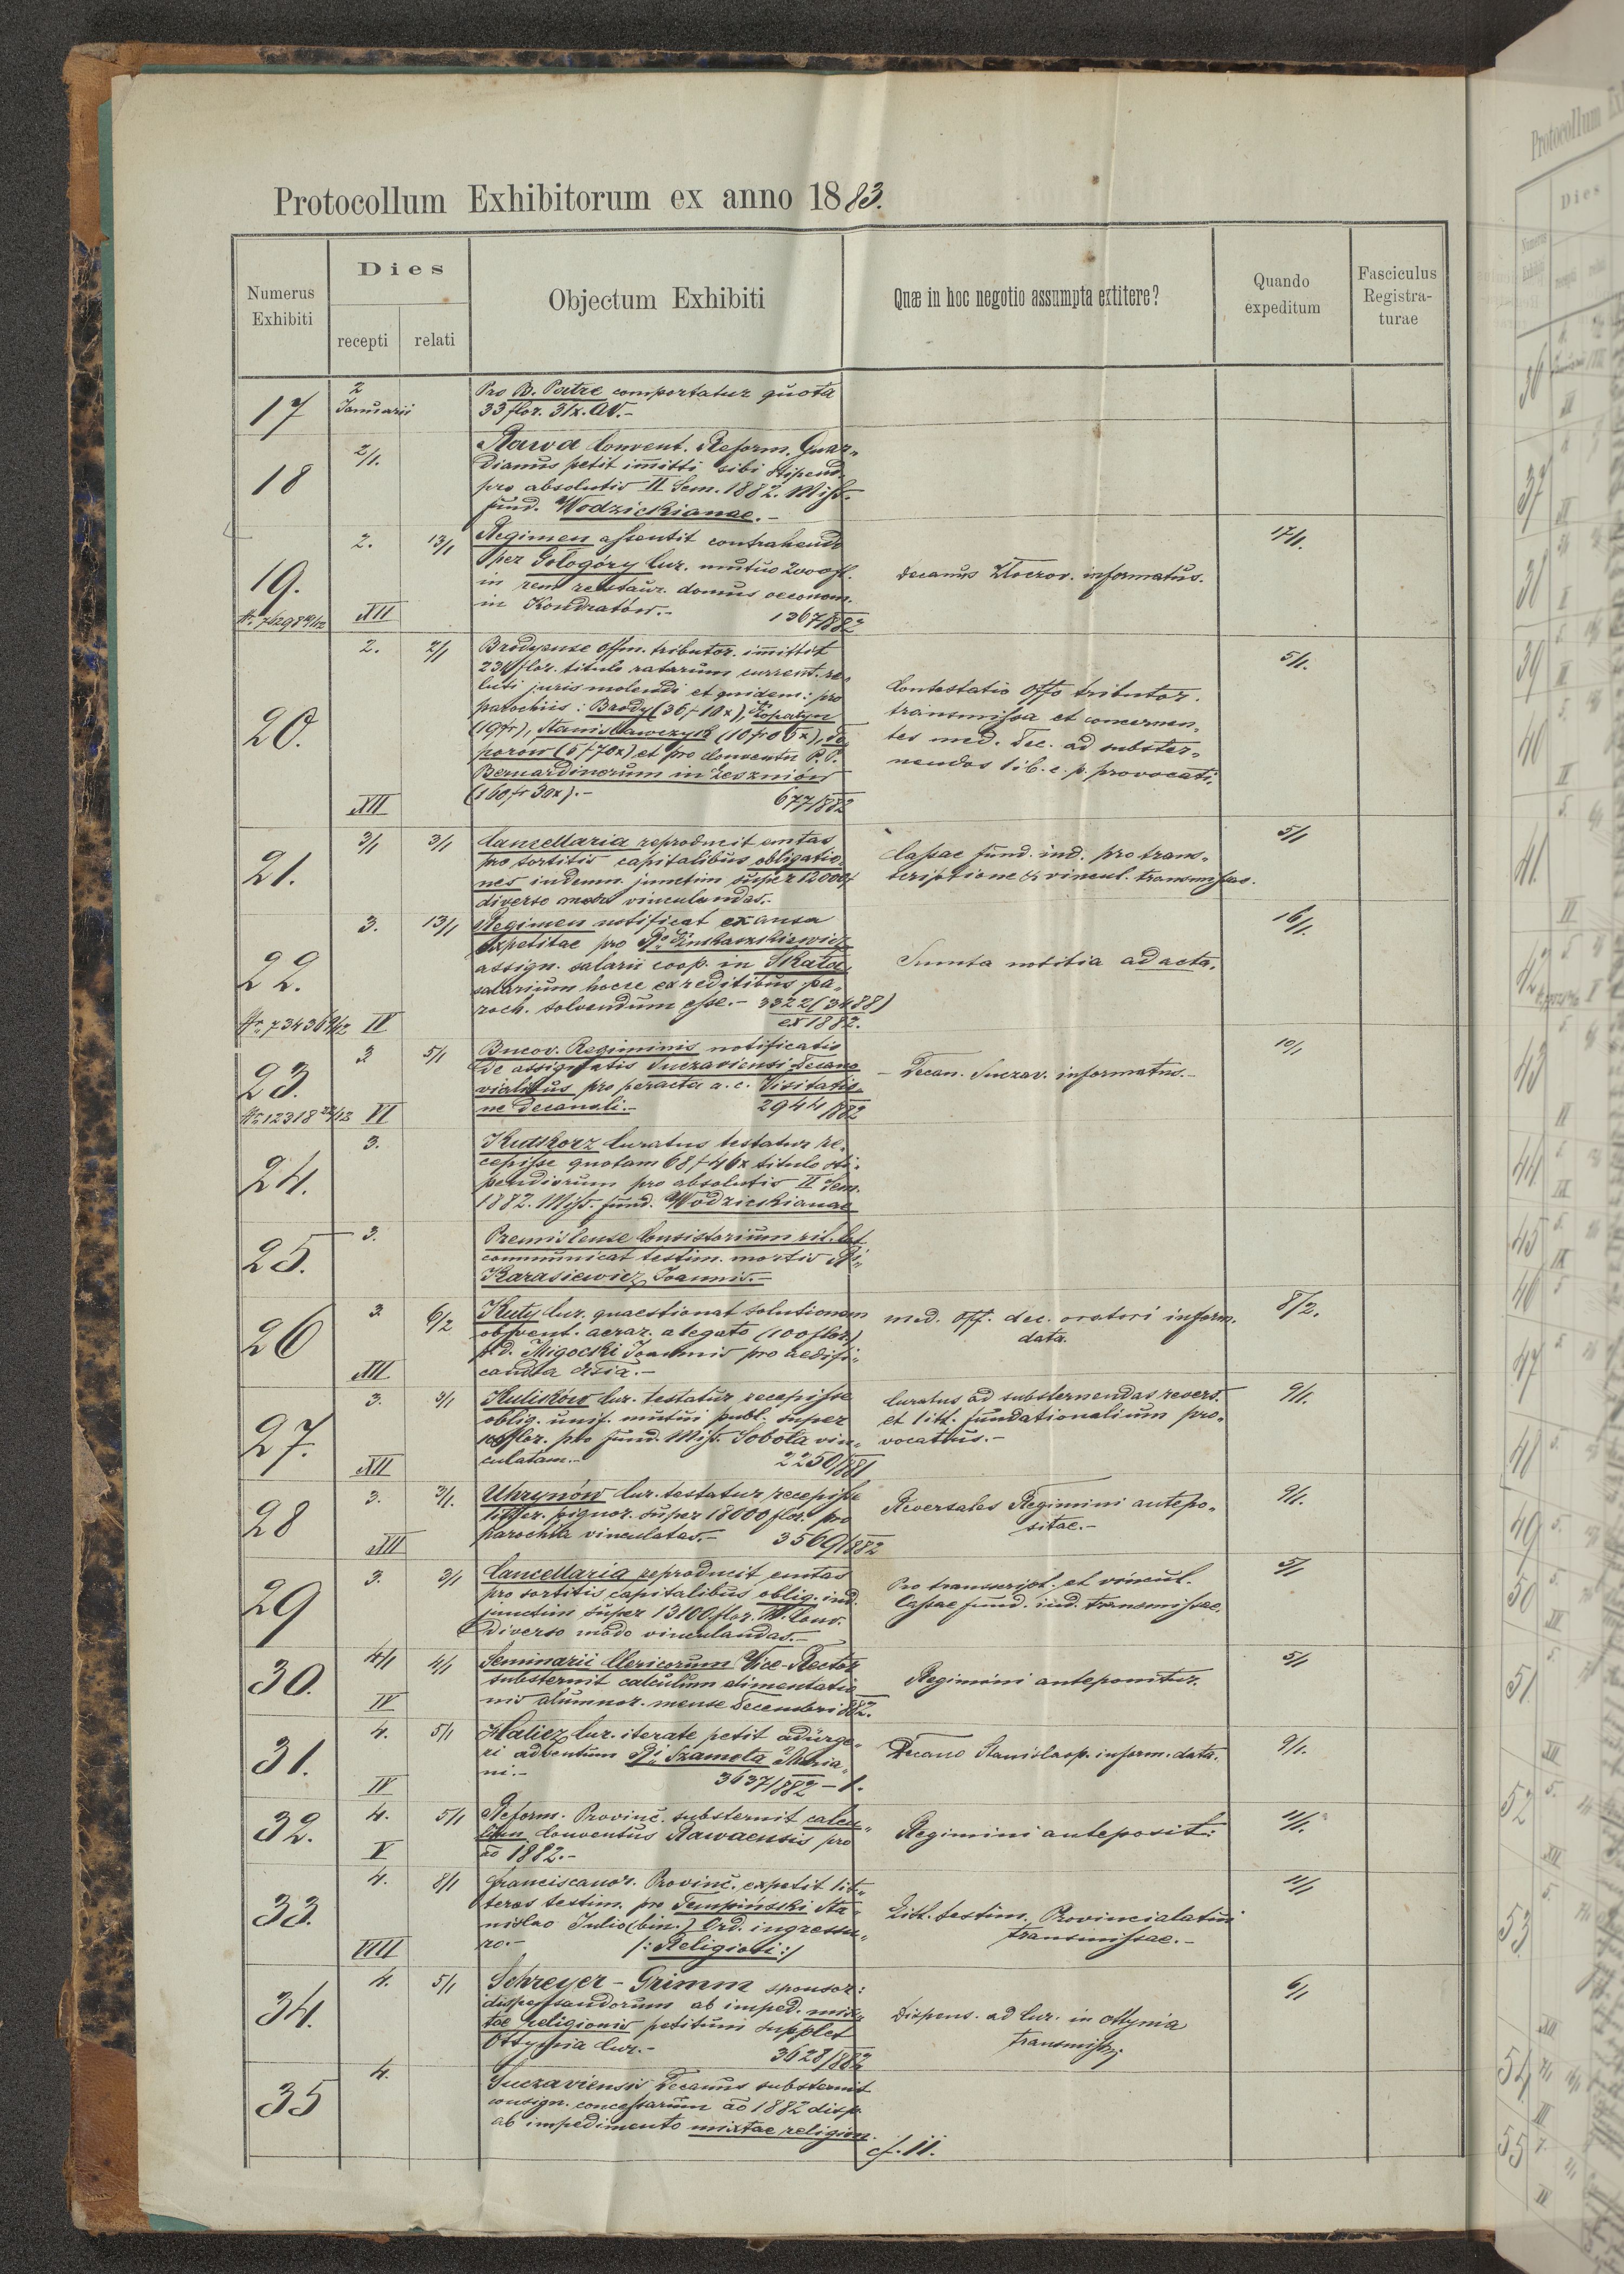 Protocollum Exhibitorum ex anno 1883.
Numerus Exhibiti
Dies
recepti
relati
Objectum Exhibiti
Quæ in hoc negotio assumpta extitere?
Quando expeditum
Fasciculus Registra-
turae
17
2
Januarii
Pro B. Patre comportatur quota
33 flor. 31x. AV.-
18
2/1.
Rawa Convent. Reform. Guar„
dianus petit imitti sibi stipend.
pro absolutis II Sem. 1882. Miss.
fund. Wodzickianae.-
19.
2.
13/1
XII
Regimen assentit contrahendo
per Gołogóry Cur. mutuo 2000 fl.
in rem restaur. domus oeconom.
in Kondratów.-
1367/882
Decanus Złoczov. informatus.
17/1.
20.
2.
2/1
XII
Brodyense Offm. tributor. imittit
flor. titulo ratarum current. re„
luti juris molendi et quidem: pro
parochiis: Brody (36f 10x), Łopatyn
Stanisławczyk
et pro Conventu P.P.
Bernardinorum in Leszniów
(160 fr 30x).-
677/882
Contestatio Offo tributor.
transmissa et concernen„
tes med. Dec. ad subster„
nendas lib. e. p. provocati.
5/1.
21.
3/1
3/1
Cancellaria reproducit emtas
pro sortitis capitalibus obligatio„
nes indemn. junctim super 12000f
diverso modo vinculandas.-
Cassae fund. ind. pro trans„
scriptione & vincul. transmissae.
5/1
22.
Nr. 73436
3.
13/1
IV
Regimen notificat ex ansa
expetitae pro
assign. salarii coop. in Skała
salarium hocce ex reditibus pa„
roch. solvendum esse.- 3322 (3488)
ex 1882.
Sumta notitia ad acta.
16/1.
23.
Nr. 12318
3
5/1
VI
Bucov. Regiminis notificatio
de assignatis Suczaviensi Decano
vialibus pro peracta a. c. Visitatio„
ne decanali.-
2944/882
- Decan. Suczav. informatus.-
10/1
24.
3.
Kutkorz Curatus testatur re„
cepisse quotam 68f 46x titulo sti„
pendiorum pro absolutis II Sem.
1882. Miss. fund. Wodzickianae
25.
3.
Premislense Consistorium rit. lat.
communicat testim. mortis Ri„
Karasiewicz Joannis.-
26
3.
6/2
XII
Kuty Cur. quaestionat solutionem
obvent. aerar. a legato (100 flor.)
p.d. Migocki Joannis pro aedifi„
canda
med. Off. dec. oratori inform.
data.
8/2.
27.
3.
3/1
XII
Kulików Cur. testatur recepisse
oblig. unif. mutui publ. super
flor. pro fund. Miss. Sobota vin„
culatam.-
2250/881
Curatus ad substernendas revers.
et litt. fundationalium pro„
vocatus.-
9/1.
28
3.
3/1.
XII
Uhrynów Cur. testatur recepisse
litter. pignor. super 18000 flor. pro
parochia vinculatas.-
3569/882
Reversales Regimini antepo„
sitae.-
9/1.
29
3.
3/1
Cancellaria reproducit emtas
pro sortitis capitalibus oblig. ind.
junctim super 13100 flor. M. Conv.
diverso modo vinculandas.-
Pro transcript. et vincul.
Cassae fund. ind. transmissae.
5/1
30.
4/1
4/1
IV
Seminarii Clericorum Vice-Rector
substernit calculum alimentatio
nis alumnor. mense Decembri 882.
Regimini anteponitur.
5/1
31.
4.
5/1
IV
Halicz Cur. iterate petit adurge„
ri adventum Ri„ Szamota Maria„
ni.-
3637/882 - 1.
Decano Stanislaop. inform. data.
9/1.
32.
4.
5/1
V
Reform. Provinc. substernit calcu„
lum Conventus Rawaensis pro
ao 1882.-
Regimini anteposit:
11/1.
33.
4.
8/1
VIII
Franciscanor. Provinc. expetit lit„
teras testim. pro Tempiński Sta„
nislao Julio (bin.) Ord. ingressu„
ro.-
/:Religiosi:/
Litt. testim. Provincialatui
transmissae.-
11/1
34.
4.
5/1
Schreyer - Grimm sponsor:
dispensandorum ab imped. mix„
tae religionis petitum supplet
Ottynia Cur.-
3628/882
Dispens. ad Cur. in Ottynia
transmiss.
6/1
35
4.
Suczaviensis Decanus substernit
consign. concessarum ao 1882 disp.
ab impedimento mixtae religion.
cf. 11.
Protocollum
Dies
36
37
38
39
40
41
42
43
44
45
46
47
48
49
50
51
52
53
54
55